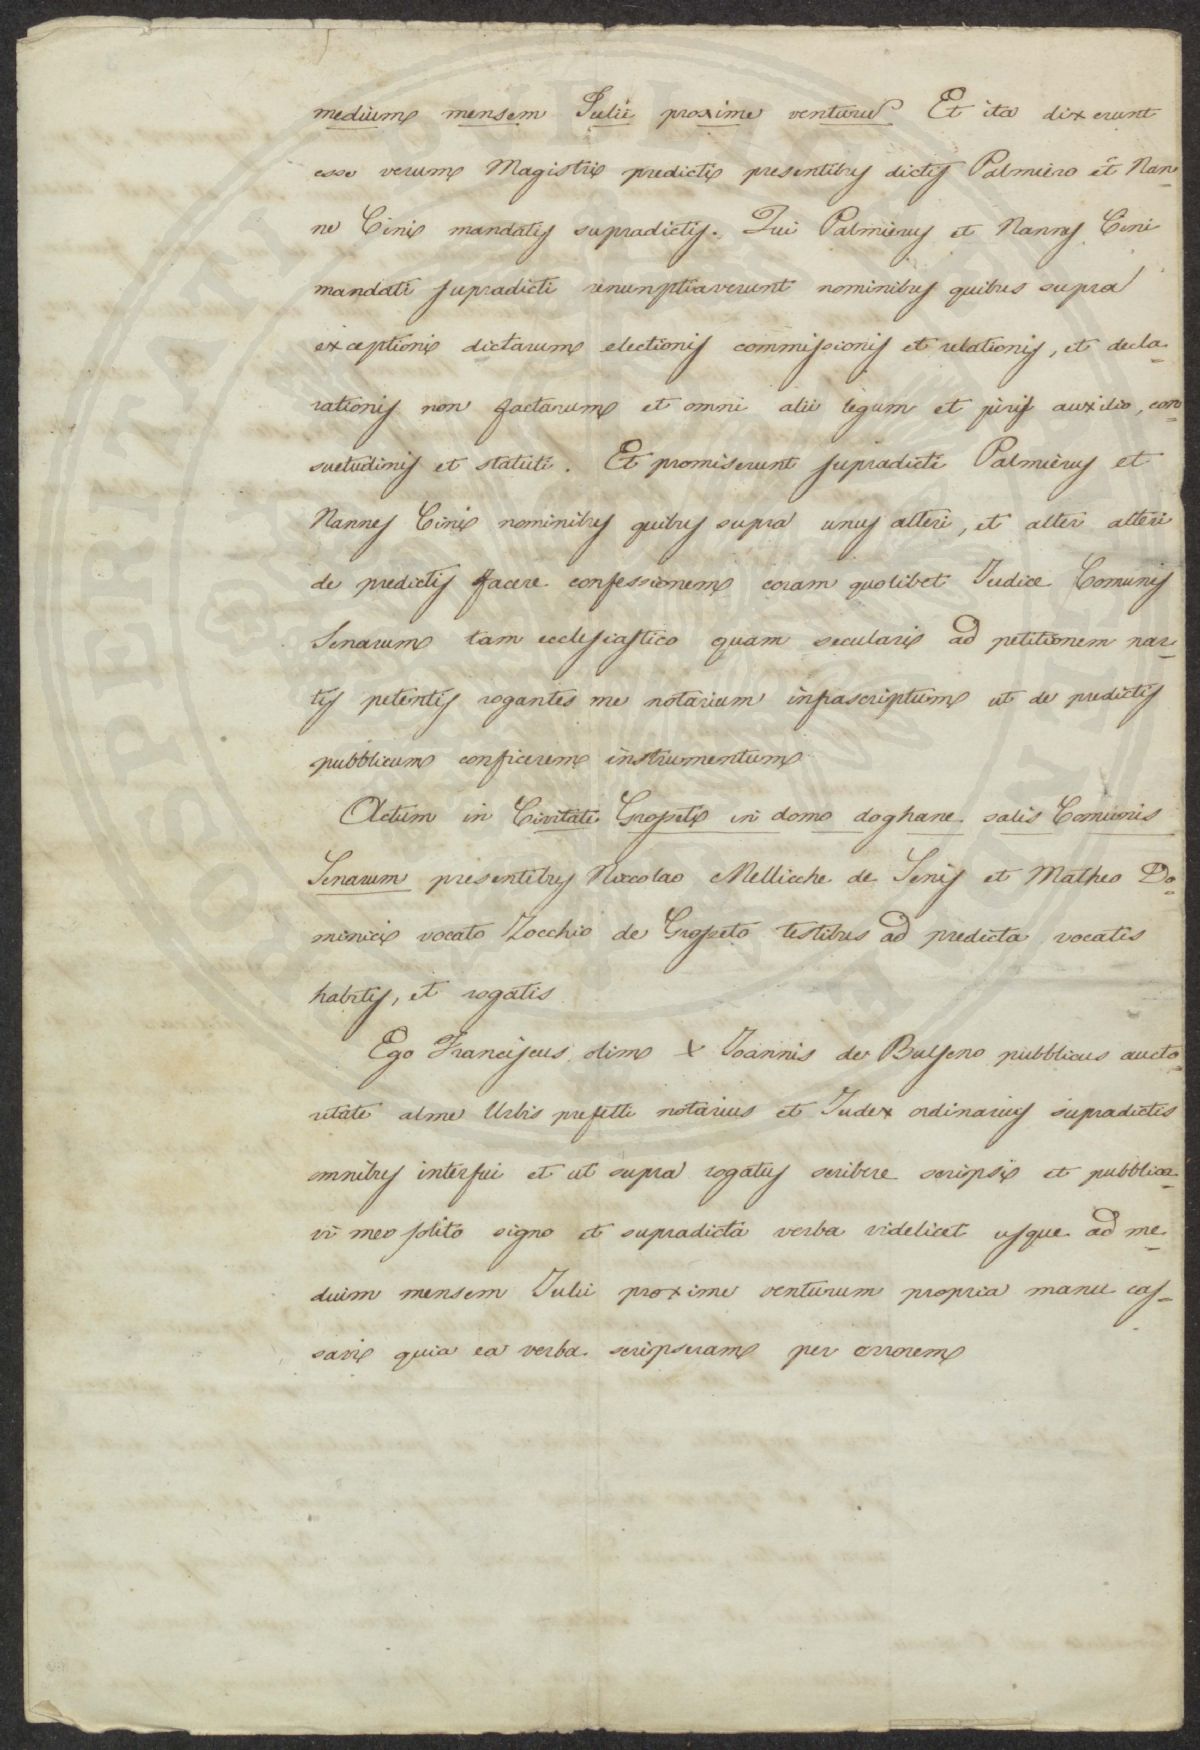 medium mensem Iulii proxime venturu Et ita dixerunt
esse verum Magistri predicti presentibus dictis Palmiero et Nan-
ne Cini mandatis supradictis. Qui Palmierus et Nannes Cini
mandati supradicti renunptiaverunt nominibus quibus supra
exceptioni dictarum electionis commissionis et relationis, et decla-
rationis non factarum et omni alii legum et juris auxilio, con-
suetudinis et statuti. Et promiserunt supradicti Palmierus et
Nannes Cini nominibus quibus supra unus alteri, et alter alteri
de predictis facere confessionem coram quolibet Iudice Comunis
Senarum tam ecclesiastico quam seculari ad petitionem par-
tis petentis rogantes me notarium infrascriptum ut de predictis
pubblicum conficerem instrumentum
Actum in Civitate Grosseti in domo doghane salis Comunis
Senarum presentibus Niccolao Mellicche de Senis et Matheo Do-
minici vocato Zocchio de Grosseto testibus ad predicta vocatis
habitis, et rogatis
Ego Franciscus olim X Ioannis de Bulseno pubblicus aucto-
ritate alme Urbis prefetti notarius et Iudex ordinarius supradictis
omnibus interfui et ut supra rogatus scribere scripsi et pubblica-
vi meo solito signo et supradicta verba videlicet usque ad me-
duim mensem Iulii proxime venturum propria manu cas-
savi quia ea verba scripseram per errorem